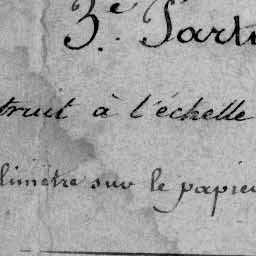 3e. Parti
truit à l'échelle
limètre sur le papier